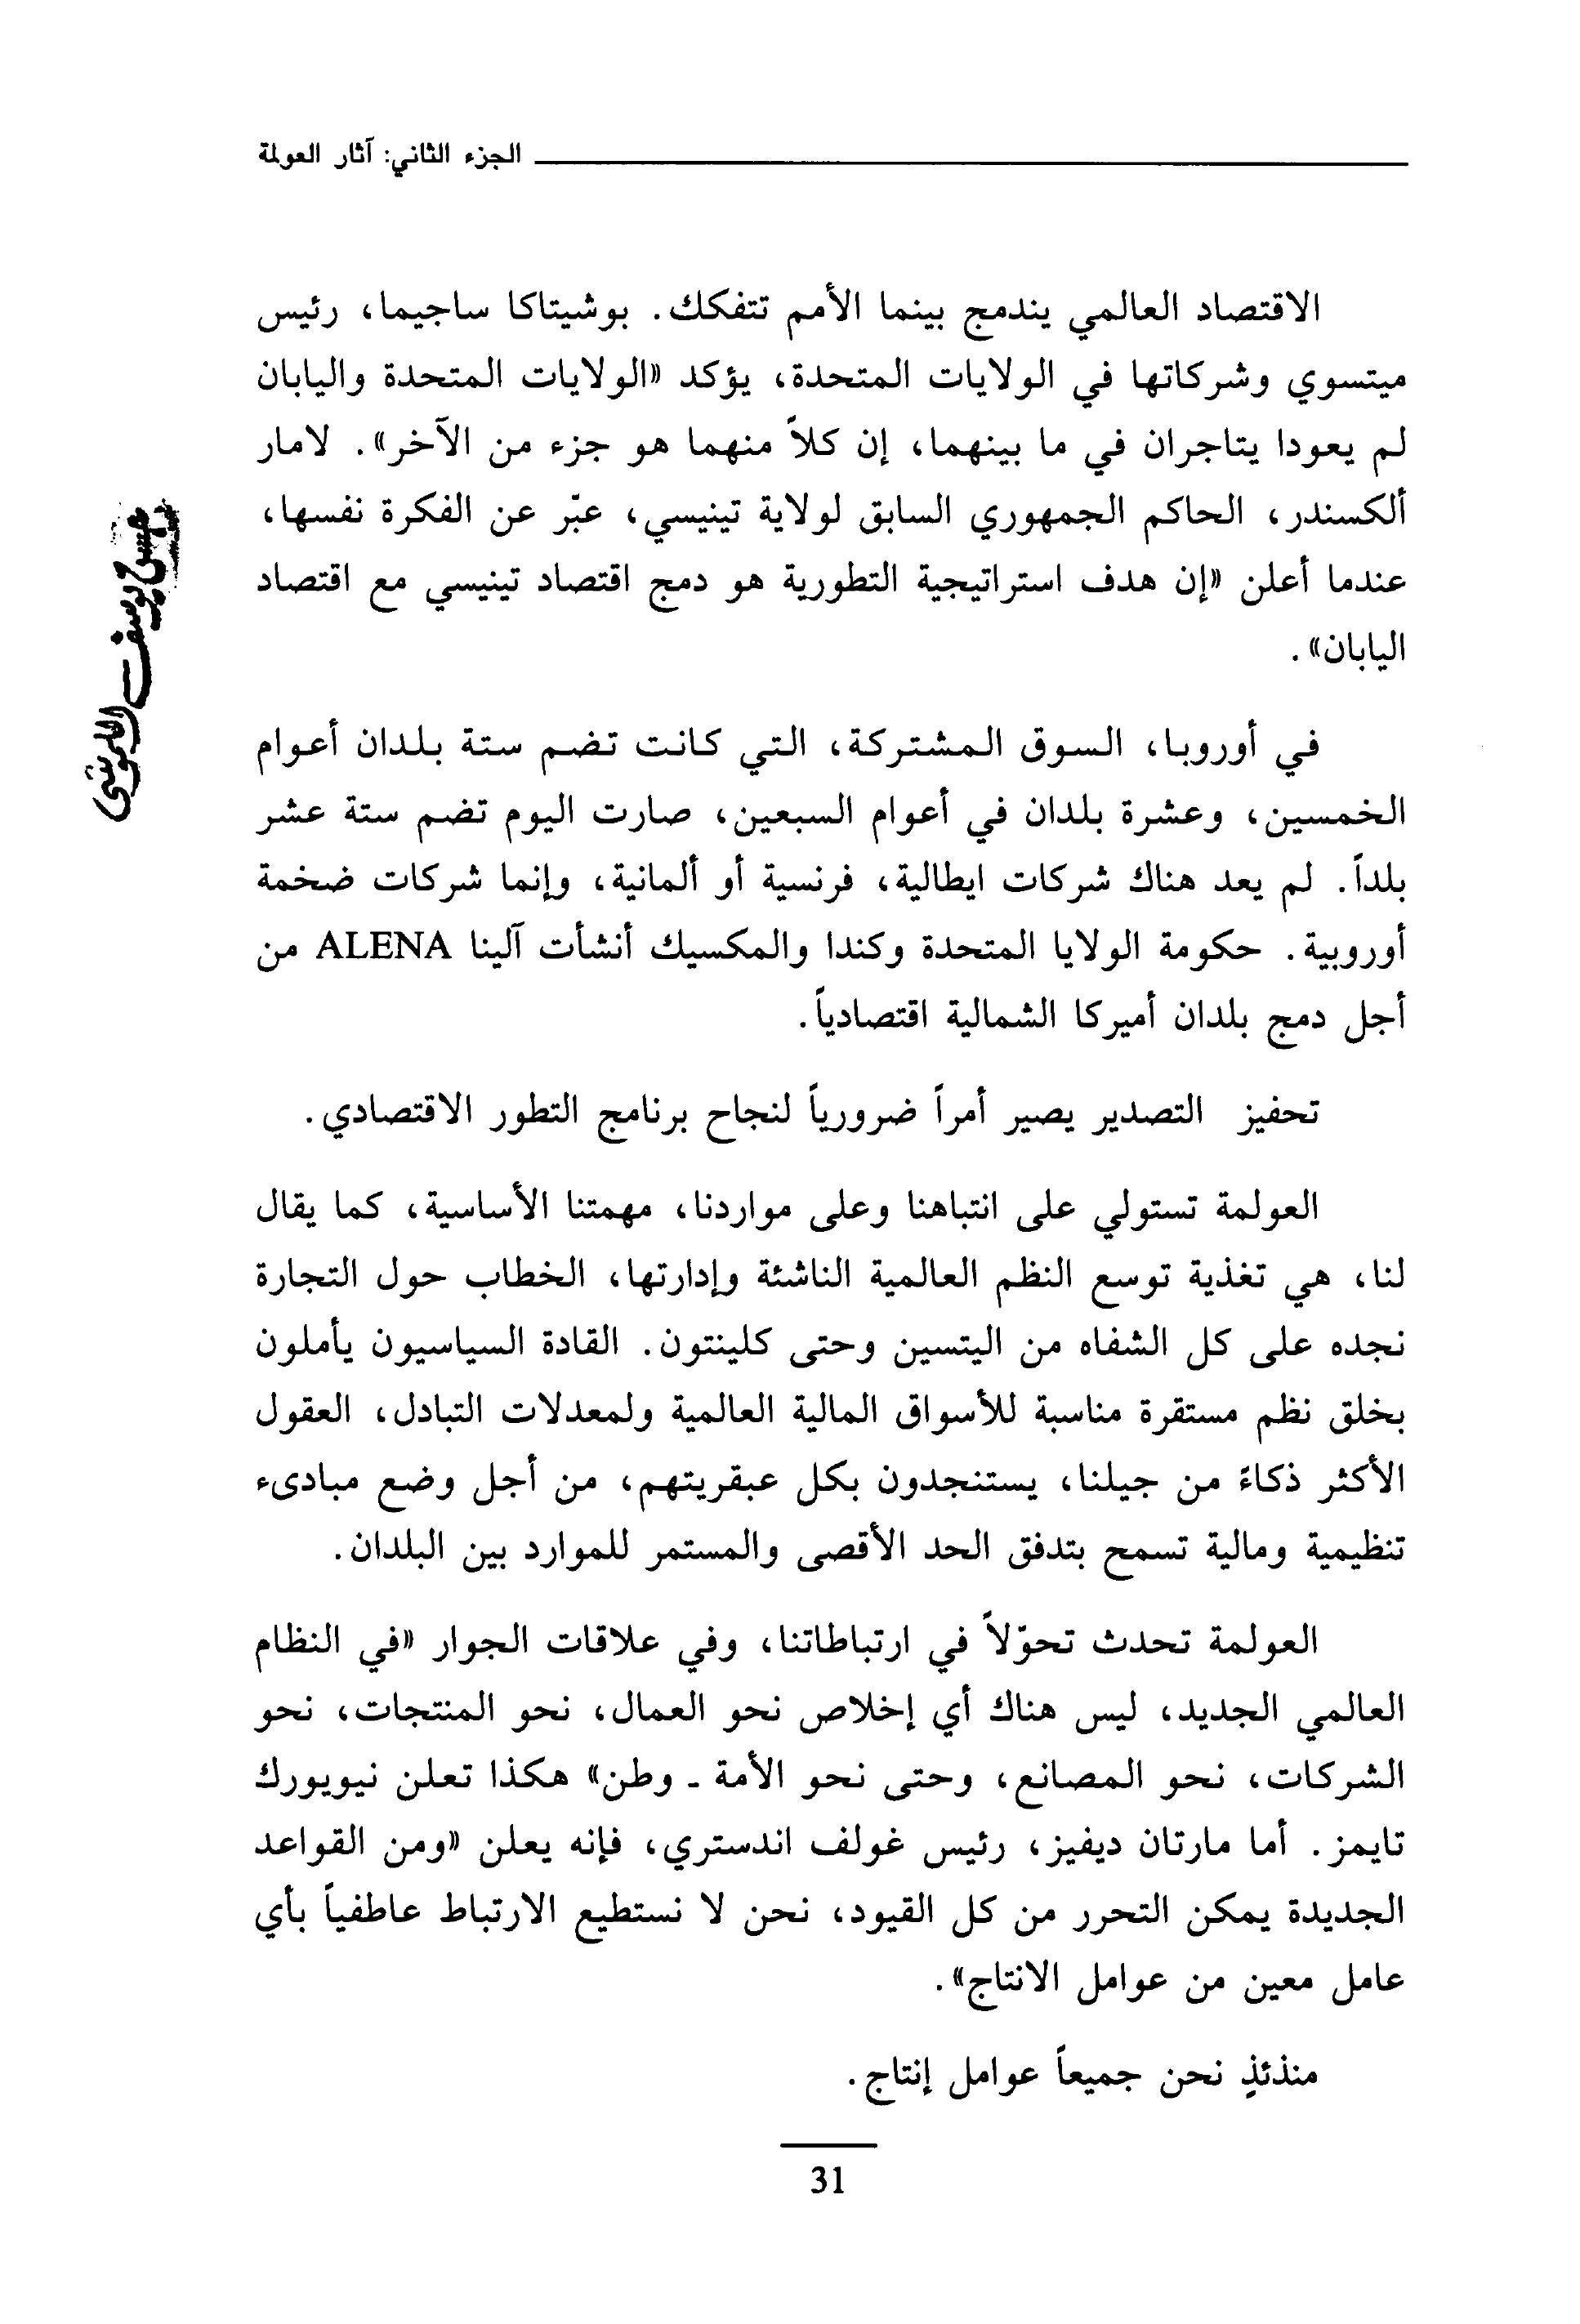 الجزء الثاني: آثار العولمة
الاقتصاد العالمي يندمج بينما الأمم تتفكك. بوشيتاكا ساجيما، رئيس
ميتسوي وشركاتها في الولايات المتحدة، يؤكد «الولايات المتحدة واليابان
لم يعودا يتاجران في ما بينهما، إن كلاً منهما هو جزء من الآخر». لامار
ألكسندر، الحاكم الجمهوري السابق لولاية تينيسي، عبّر عن الفكرة نفسها،
عندما أعلن «إن هدف استراتيجية التطورية هو دمج اقتصاد تينيسي مع اقتصاد
اليابان».
في أوروبا، السوق المشتركة، التي كانت تضم ستة بلدان أعوام
الخمسين، وعشرة بلدان في أعوام السبعين، صارت اليوم تضم ستة عشر
بلداً. لم يعد هناك شركات ايطالية، فرنسية أو ألمانية، وإنما شركات ضخمة
أوروبية. حكومة الولايا المتحدة وكندا والمكسيك أنشأت آلينا ALENA من
أجل دمج بلدان أميركا الشمالية اقتصادياً.
تحفيز التصدير يصير أمراً ضرورياً لنجاح برنامج التطور الاقتصادي.
العولمة تستولي على انتباهنا وعلى مواردنا، مهمتنا الأساسية، كما يقال
لنا، هي تغذية توسع النظم العالمية الناشئة وإدارتها، الخطاب حول التجارة
نجده على كل الشفاه من اليتسين وحتى كلينتون. القادة السياسيون يأملون
بخلق نظم مستقرة مناسبة للأسواق المالية العالمية ولمعدلات التبادل، العقول
الأكثر ذكاءً من جيلنا، يستنجدون بكل عبقريتهم، من أجل وضع مبادىء
تنظيمية ومالية تسمح بتدفق الحد الأقصى والمستمر للموارد بين البلدان.
العولمة تحدث تحوّلاً في ارتباطاتنا، وفي علاقات الجوار «في النظام
العالمي الجديد، ليس هناك أي إخلاص نحو العمال، نحو المنتجات، نحو
الشركات، نحو المصانع، وحتى نحو الأمة ـ وطن» هكذا تعلن نيويورك
تايمز. أما مارتان ديفيز، رئيس غولف اندستري، فإنه يعلن «ومن القواعد
الجديدة يمكن التحرر من كل القيود، نحن لا نستطيع الارتباط عاطفياً بأي
عامل معين من عوامل الانتاج».
منذئذٍ نحن جميعاً عوامل إنتاج.
31